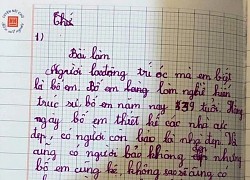 Thứ
1)
Bài làm
Người lao động trí óc mà em biết
là bố em. Bố em đang làm nghề kiến
trúc sư bố em năm nay 39 tuổi. Hàng
ngày bố em thiết kế các nhà rất
đẹp, có người còn bảo là nhà đẹp. Và
cũng có người bảo không đẹp nhưng
bố em cũng kệ không sao cũng có